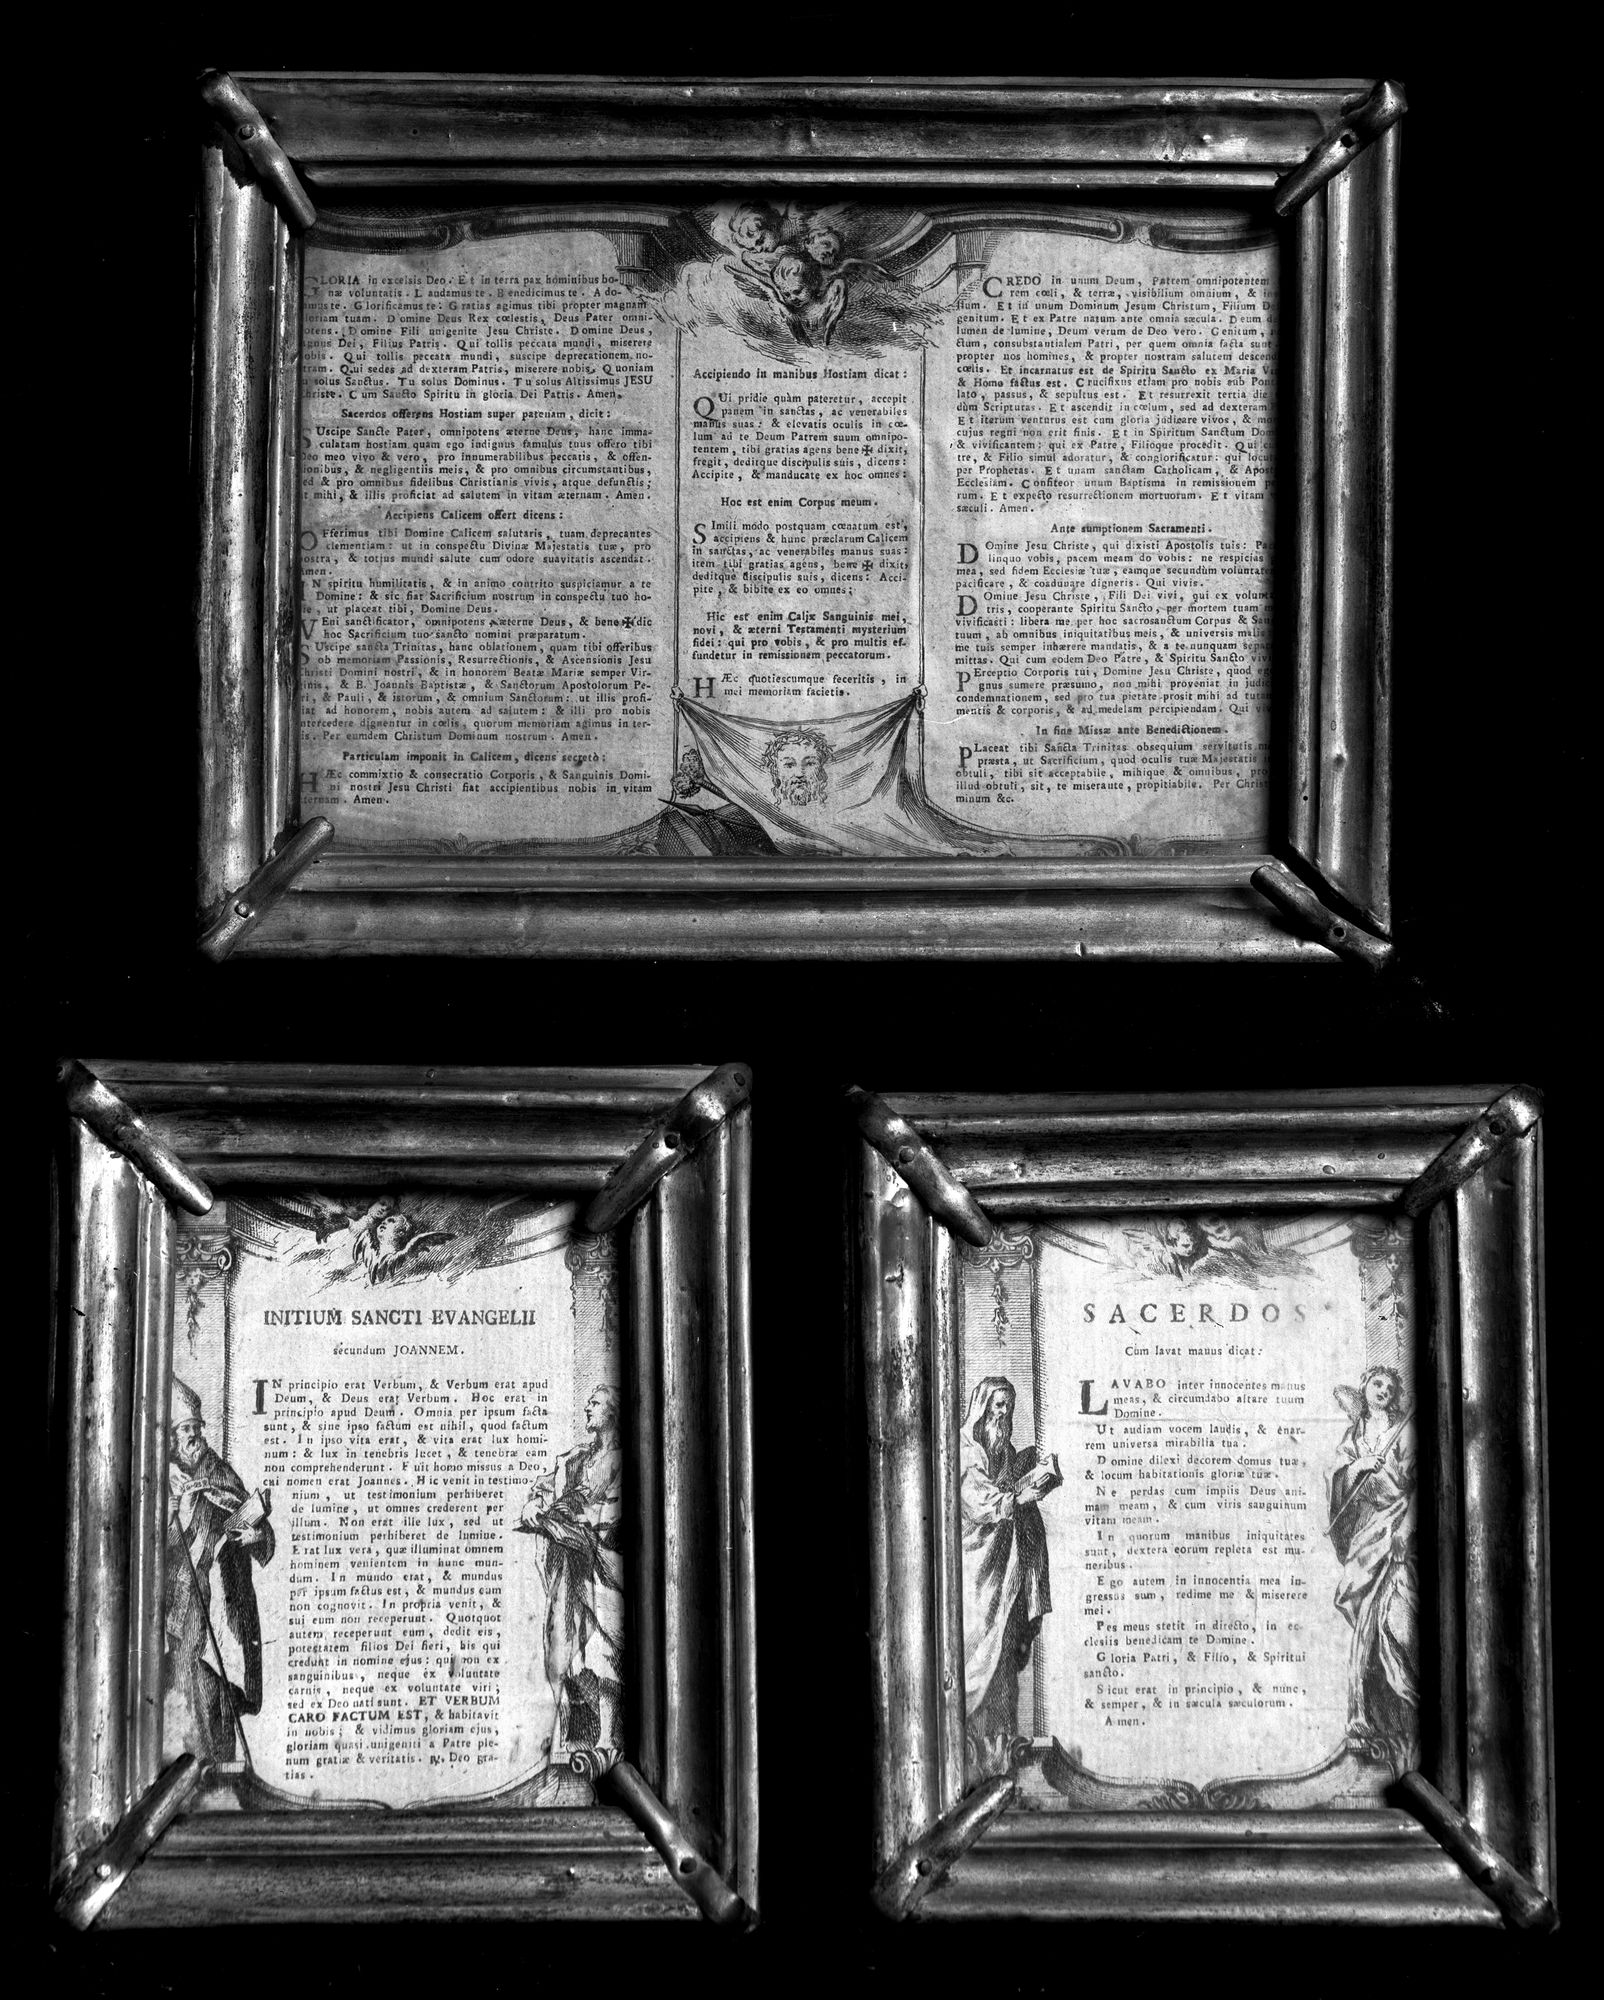 GLORIA in excelsis Deo. Et in terra pax hominibus bo-
næ voluntatis. Laudamus te. Benedicimus te. Ado-
mus te. Glorificamus te: Gratias agimus tibi propter magnam
loriam tuam. Domine Deus Rex cœlestis, Deus Pater omni-
otens. Domine Fili unigenite Jesu Christe. Domine Deus,
agnus Dei, Filius Patris. Qui tollis peccata mundi, miserere
obis. Qui tollis peccata mundi, suscipe deprecationem no-
tram. Qui sedes ad dexteram Patris, miserere nobis, Quoniam
u solus Sanctus. Tu solus Dominus. Tu solus Altissimus JESU
hriste. Cum Sancto Spiritu in gloria Dei Patris. Amen.
Sacerdos offerens Hostiam super patenam, dicit:
SUscipe Sancte Pater, omnipotens æterne Deus, hanc imma-
culatam hostiam quam ego indignus famulus tuus offero tibi
Deo meo vivo & vero, pro innumerabilibus peccatis, & offen-
ionibus, & negligentiis meis, & pro omnibus circumstantibus,
ed & pro omnibus fidelibus Christianis vivis, atque defunctis;
t mihi, & illis proficiat ad salutem in vitam æternam. Amen.
Accipiens Calicem offert dicens:
OFferimus tibi Domine Calicem salutaris, tuam deprecantes
clementiam: ut in conspectu Divinæ Majestatis tuæ, pro
ostra, & totius mundi salute cum odore suavitatis ascendat.
Amen.
IN spiritu humilitatis, & in animo contrito suspiciamur a te
Domine: & sic fiat Sacrificium nostrum in conspectu tuo ho-
ie, ut placeat tibi, Domine Deus.
VEni sanctificator, omnipotens æterne Deus, & bene✠dic
hoc Sacrificium tuo sancto nomini præparatum.
SUscipe sancta Trinitas, hanc oblationem, quam tibi offeribus
ob memoriam Passionis, Resurrectionis, & Ascensionis Jesu
Christi Domini nostri, & in honorem Beatæ Mariæ semper Vir-
ginis, & B. Joannis Baptistæ, & Sanctorum Apostolorum Pe-
i, & Pauli, & istorum, & omnium Sanctorum: ut illis profi-
iat ad honorem, nobis autem ad salutem: & illi pro nobis
ntercedere dignentur in cœlis, quorum memoriam agimus in ter-
is. Per eumdem Christum Dominum nostrum. Amen.
Particulam imponit in Calicem, dicens secretò:
HÆc commixtio & consecratio Corporis, & Sanguinis Domi-
ni nostri Jesu Christi fiat accipientibus nobis in vitam
ternam. Amen.
Accipiendo in manibus Hostiam dicat:
QUi pridie quàm pateretur, accepit
panem in sanctas, ac venerabiles
manus suas: & elevatis oculis in cœ-
lum ad te Deum Patrem suum omnipo-
tentem, tibi gratias agens bene✠dixit,
fregit, deditque discipulis suis, dicens:
Accipite, & manducate ex hoc omnes:
Hoc est enim Corpus meum.
SImili modo postquam cœnatum est,
accipiens & hunc præclarum Calicem
in sanctas, ac venerabiles manus suas:
item tibi gratias agens, bene✠dixit,
deditque discipulis suis, dicens: Acci-
pite, & bibite ex eo omnes;
Hic est enim Calix Sanguinis mei,
novi, & æterni Testamenti mysterium
fidei: qui pro vobis, & pro multis ef-
fundetur in remissionem peccatorum.
HÆc quotiescumque feceritis, in
mei memoriam facietis.
CREDO in unum Deum, Patrem omnipotentem
rem cœli, & terræ, visibilium omnium, & in
lium. Et in unum Dominum Jesum Christum, Filium De
genitum. Et ex Patre natum ante omnia sæcula. Deum d
lumen de lumine, Deum verum de Deo vero. Genitum,
ctum, consubstantialem Patri, per quem omnia facta sunt.
propter nos homines, & propter nostram salutem descend
cœlis. Et incarnatus est de Spiritu Sancto ex Maria Vi
& Homo factus est. Crucifixus etiam pro nobis sub Pon
lato, passus, & sepultus est. Et resurrexit tertia die
dùm Scripturas. Et ascendit in cœlum, sed ad dexteram
Et iterum venturus est cum gloria judicare vivos, & mo
cujus regni non erit finis. Et in Spiritum Sanctum Dom
& vivificantem: qui ex Patre, Filioque procedit. Qui c
tre, & Filio simul adoratur, & conglorificatur: qui locut
per Prophetas. Et unam sanctam Catholicam, & Apost
Ecclesiam. Confiteor unum Baptisma in remissionem p
rum. Et expecto resurrectionem mortuorum. Et vitam
sæculi. Amen.
Ante sumptionem Sacramenti.
DOmine Jesu Christe, qui dixisti Apostolis tuis: Pa
linquo vobis, pacem meam do vobis: ne respicias
mea, sed fidem Ecclesiæ tuæ, eamque secundùm voluntate
pacificare, & coadunare digneris. Qui vivis.
DOmine Jesu Christe, Fili Dei vivi, qui ex volunta
tris, cooperante Spiritu Sancto, per mortem tuam m
vivificasti: libera me per hoc sacrosanctum Corpus & San
tuum, ab omnibus iniquitatibus meis, & universis malis
me tuis semper inhærere mandatis, & a te nunquam separ
mittas. Qui cum eodem Deo Patre, & Spiritu Sancto viv
PErceptio Corporis tui, Domine Jesu Christe, quod eg
gnus sumere præsumo, non mihi proveniat in judic
condemnationem, sed pro tua pietate prosit mihi ad tutam
mentis & corporis, & ad medelam percipiendam. Qui viv
In fine Missæ ante Benedictionem.
PLaceat tibi Sancta Trinitas obsequium servitutis m
præsta, ut Sacrificium, quod oculis tuæ Majestatis i
obtuli, tibi sit acceptabile, mihique & omnibus, pro
illud obtuli, sit, te miserante, propitiabile. Per Christ
minum &c.
INITIUM SANCTI EVANGELII
secundum JOANNEM.
IN principio erat Verbum, & Verbum erat apud
Deum, & Deus erat Verbum. Hoc erat in
principio apud Deum. Omnia per ipsum facta
sunt, & sine ipso factum est nihil, quod factum
est. In ipso vita erat, & vita erat lux homi-
num: & lux in tenebris lucet, & tenebræ eam
non comprehenderunt. Fuit homo missus a Deo,
cui nomen erat Joannes. Hic venit in testimo-
nium, ut testimonium perhiberet
de lumine, ut omnes crederent per
illum. Non erat ille lux, sed ut
testimonium perhiberet de lumine.
Erat lux vera, quæ illuminat omnem
hominem venientem in hunc mun-
dum. In mundo erat, & mundus
per ipsum factus est, & mundus eum
non cognovit. In propria venit, &
sui eum non receperunt. Quotquot
autem receperunt eum, dedit eis,
potestatem filios Dei fieri, his qui
credunt in nomine ejus: qui non ex
sanguinibus, neque ex voluntate
carnis, neque ex voluntate viri;
sed ex Deo nati sunt. ET VERBUM
CARO FACTUM EST, & habitavit
in nobis; & vidimus gloriam ejus,
gloriam quasi unigeniti a Patre ple-
num gratiæ & veritatis. ℟. Deo gra-
tias.
SACERDOS
Cùm lavat manus dicat:
LAVABO inter innocentes manus
meas, & circumdabo altare tuum
Domine.
Ut audiam vocem laudis, & enar-
rem universa mirabilia tua.
Domine dilexi decorem domus tuæ,
& locum habitationis gloriæ tuæ.
Ne perdas cum impiis Deus ani-
mam meam, & cum viris sanguinum
vitam meam.
In quorum manibus iniquitates
sunt, dextera eorum repleta est mu-
neribus.
Ego autem in innocentia mea in-
gressus sum, redime me & miserere
mei.
Pes meus stetit in directo, in ec-
clesiis benedicam te Domine.
Gloria Patri, & Filio, & Spiritui
sancto.
Sicut erat in principio, & nunc,
& semper, & in sæcula sæculorum.
Amen.